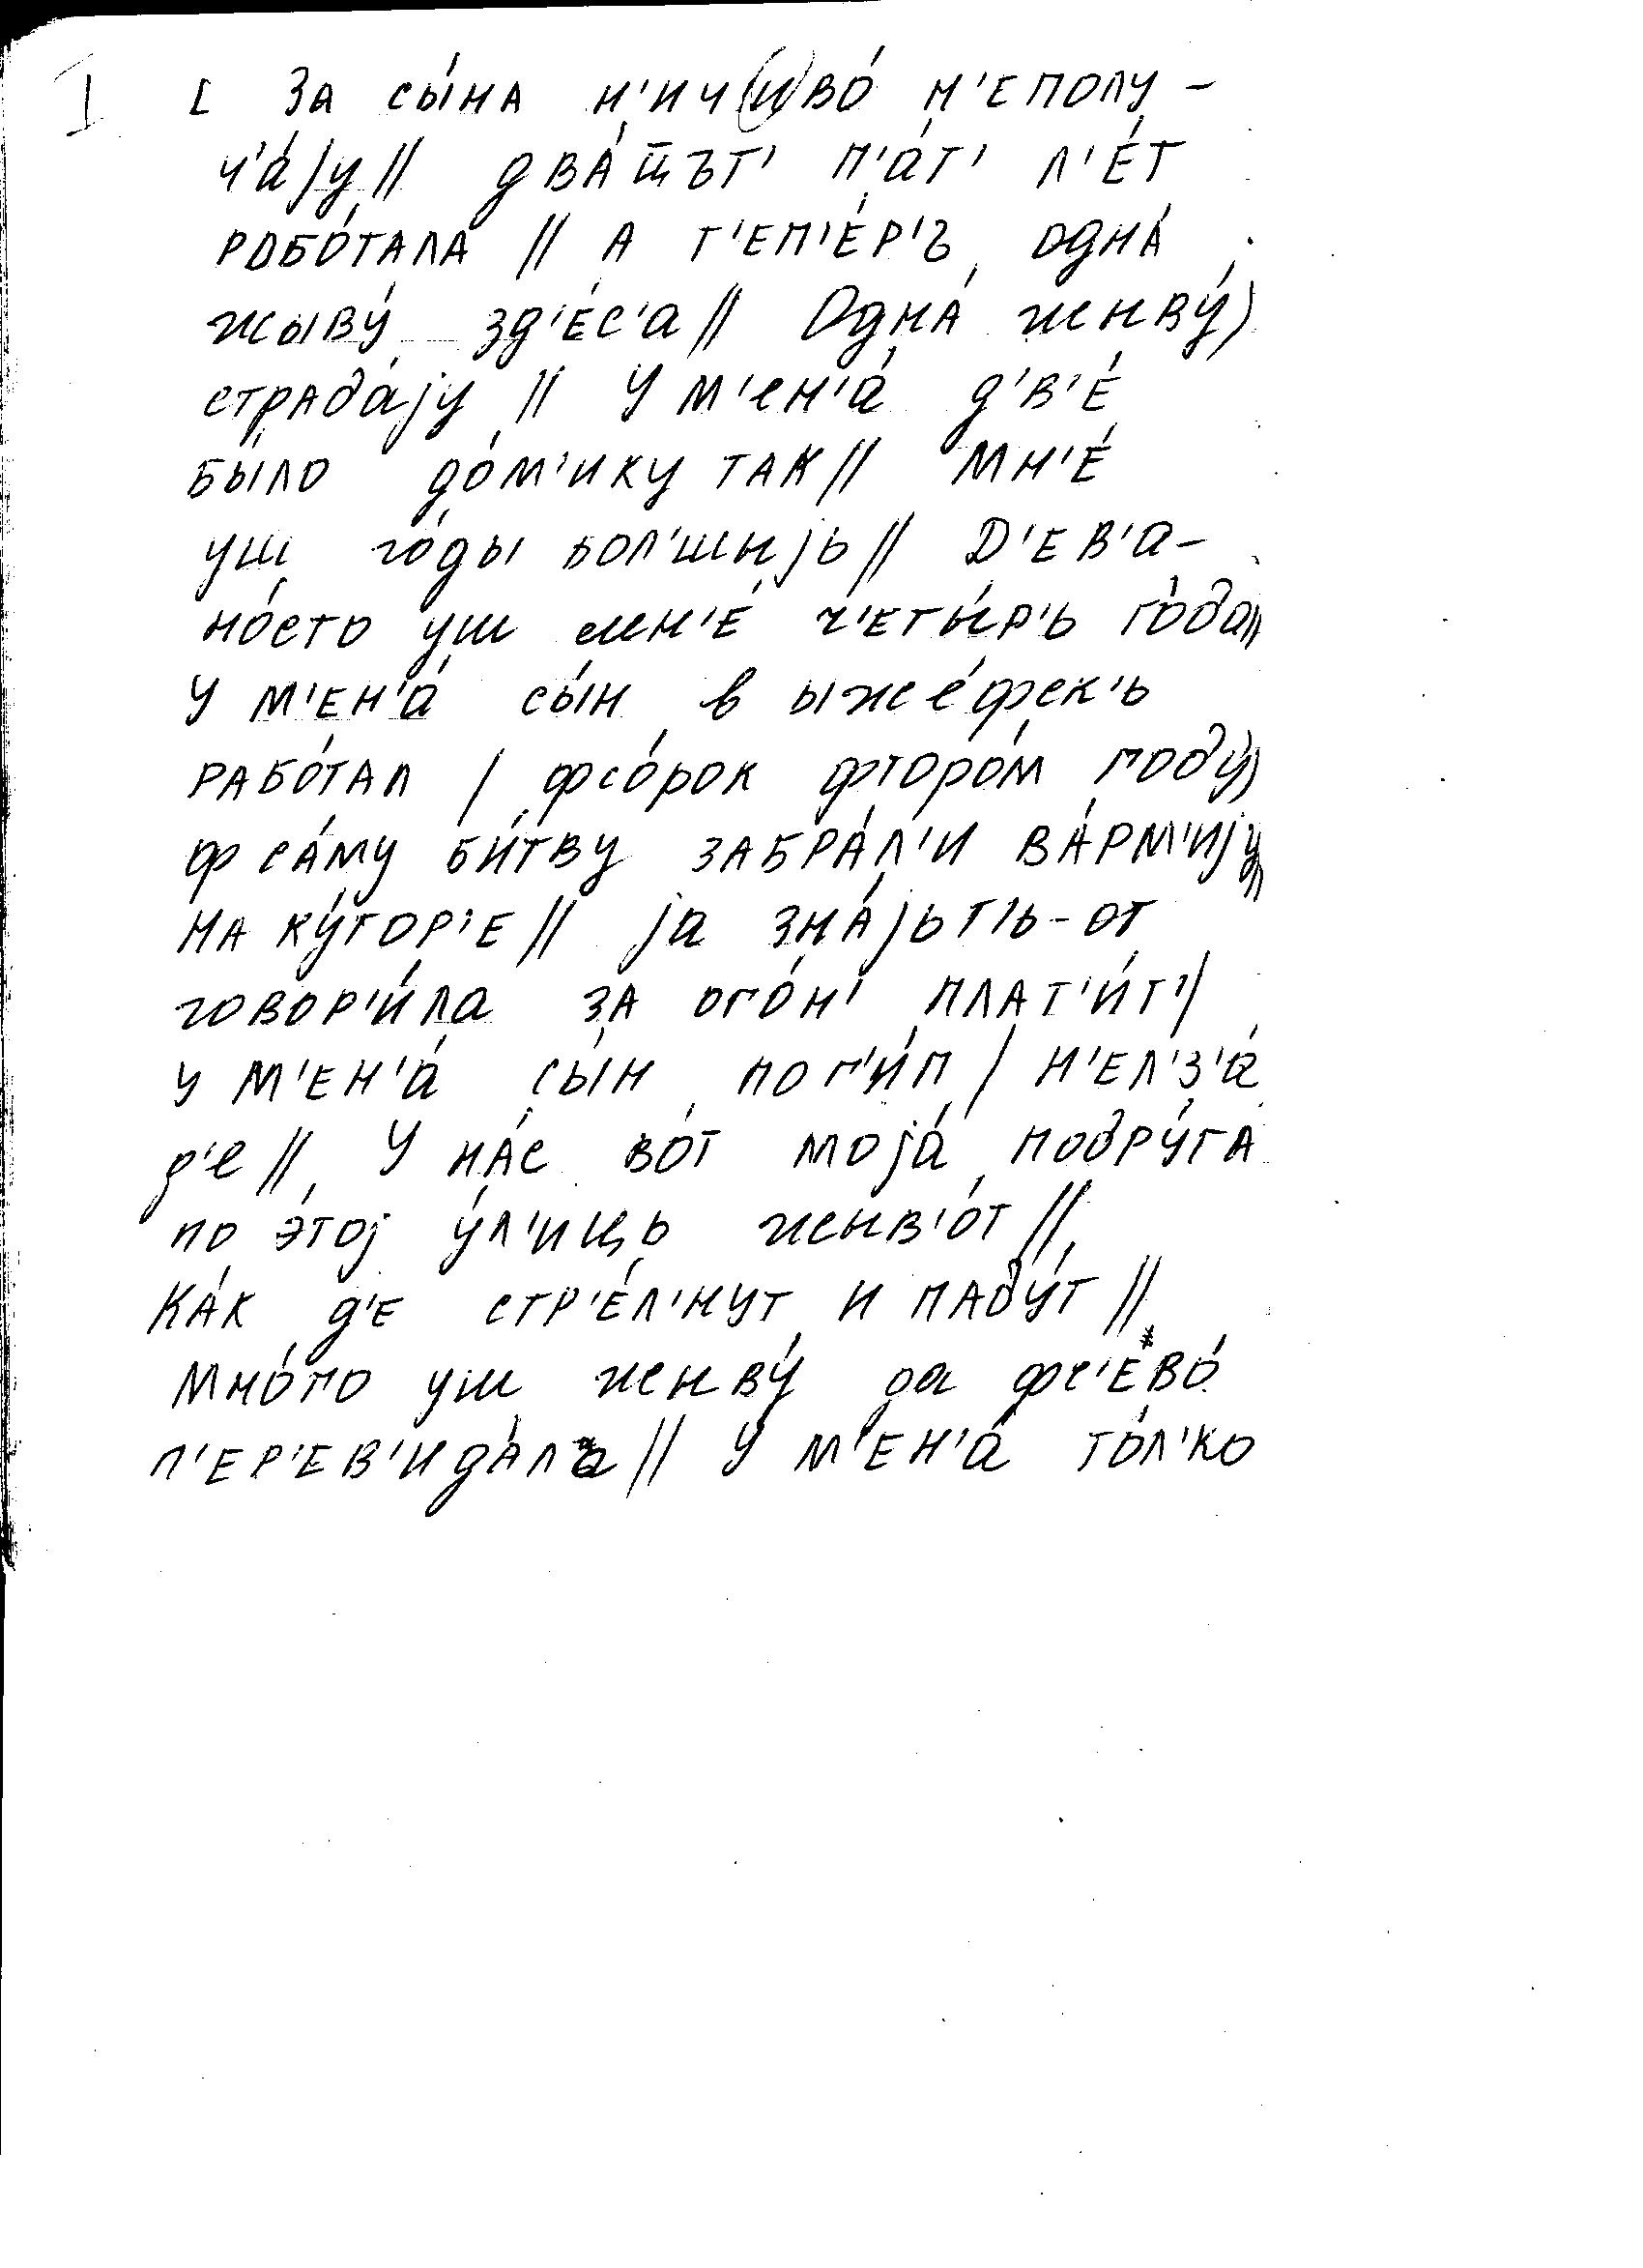 I [ За сы́на н'ич(и)во́ н'еполу-
ч'а́jу // два́ццът' п'а́т' л'е́т
робо́тала // а т'еп'е́р'ъ одна́
жыву́ зд'е́с'а // Одна́ жыву́/
страда́jу // У м'ен'а́ д'в'е́
бы́ло до́м'ику так // Мн'е́
уш го́ды бол'шыjь // Д'ев'а-
но́сто уш мн'е́ ч'еты́р'ь го́да //
У м'ен'а́ сы́н в ыже́фск'ь
рабо́тал / фсо́рок фторо́м году́/
ф са́му би́тву забра́л'и ва́рм'иjу //
на ку́гор'е // jа зна́jьт'ь-от
говор'и́ла за ого́н' плат'и́т'/
у м'ен'а́ сы́н пог'и́п / н'ел'з'а́
д'е // У на́с во́т моjа́ подру́га
по э́тоj у́л'иць жыв'о́т //
Ка́к д'е стр'е́л'нут и паду́т //
Мно́го уш жыву́ да фс'ево́
п'ер'ев'ида́ла // У м'ен'а́ то́л'ко